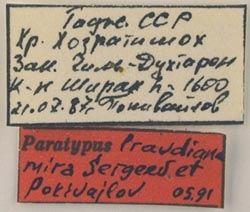 Тадж. ССР
Хр. Хозратишох
Зап. Чиль-Духтарон
К-к Ширак h-1600
21.07.87г. Покивайлов
Paratypus Pravdiana
mira Sergeev et
Pokivajlov 05.91